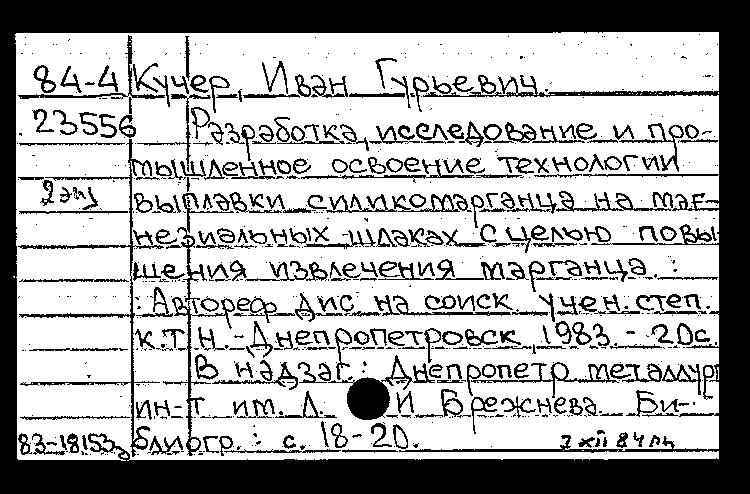 84-4 Кучер, Иван Гурьевич.
23556 Разработка, исследование и про-
мышленное освоение технологии
2 экз выплавки силикомарганца на маг-
незиальных шлаках с целью повы
шения извлечения марганца. :
: Автореф дис на соиск учен. степ.
к.т.н. - Днепропетровск, 1983. - 20с.
В надзаг.: Днепропетр металлург
ин-т им. Л. И Брежнева. Би-
83-18153 блиогр.: с. 18-20. 7 XII 84